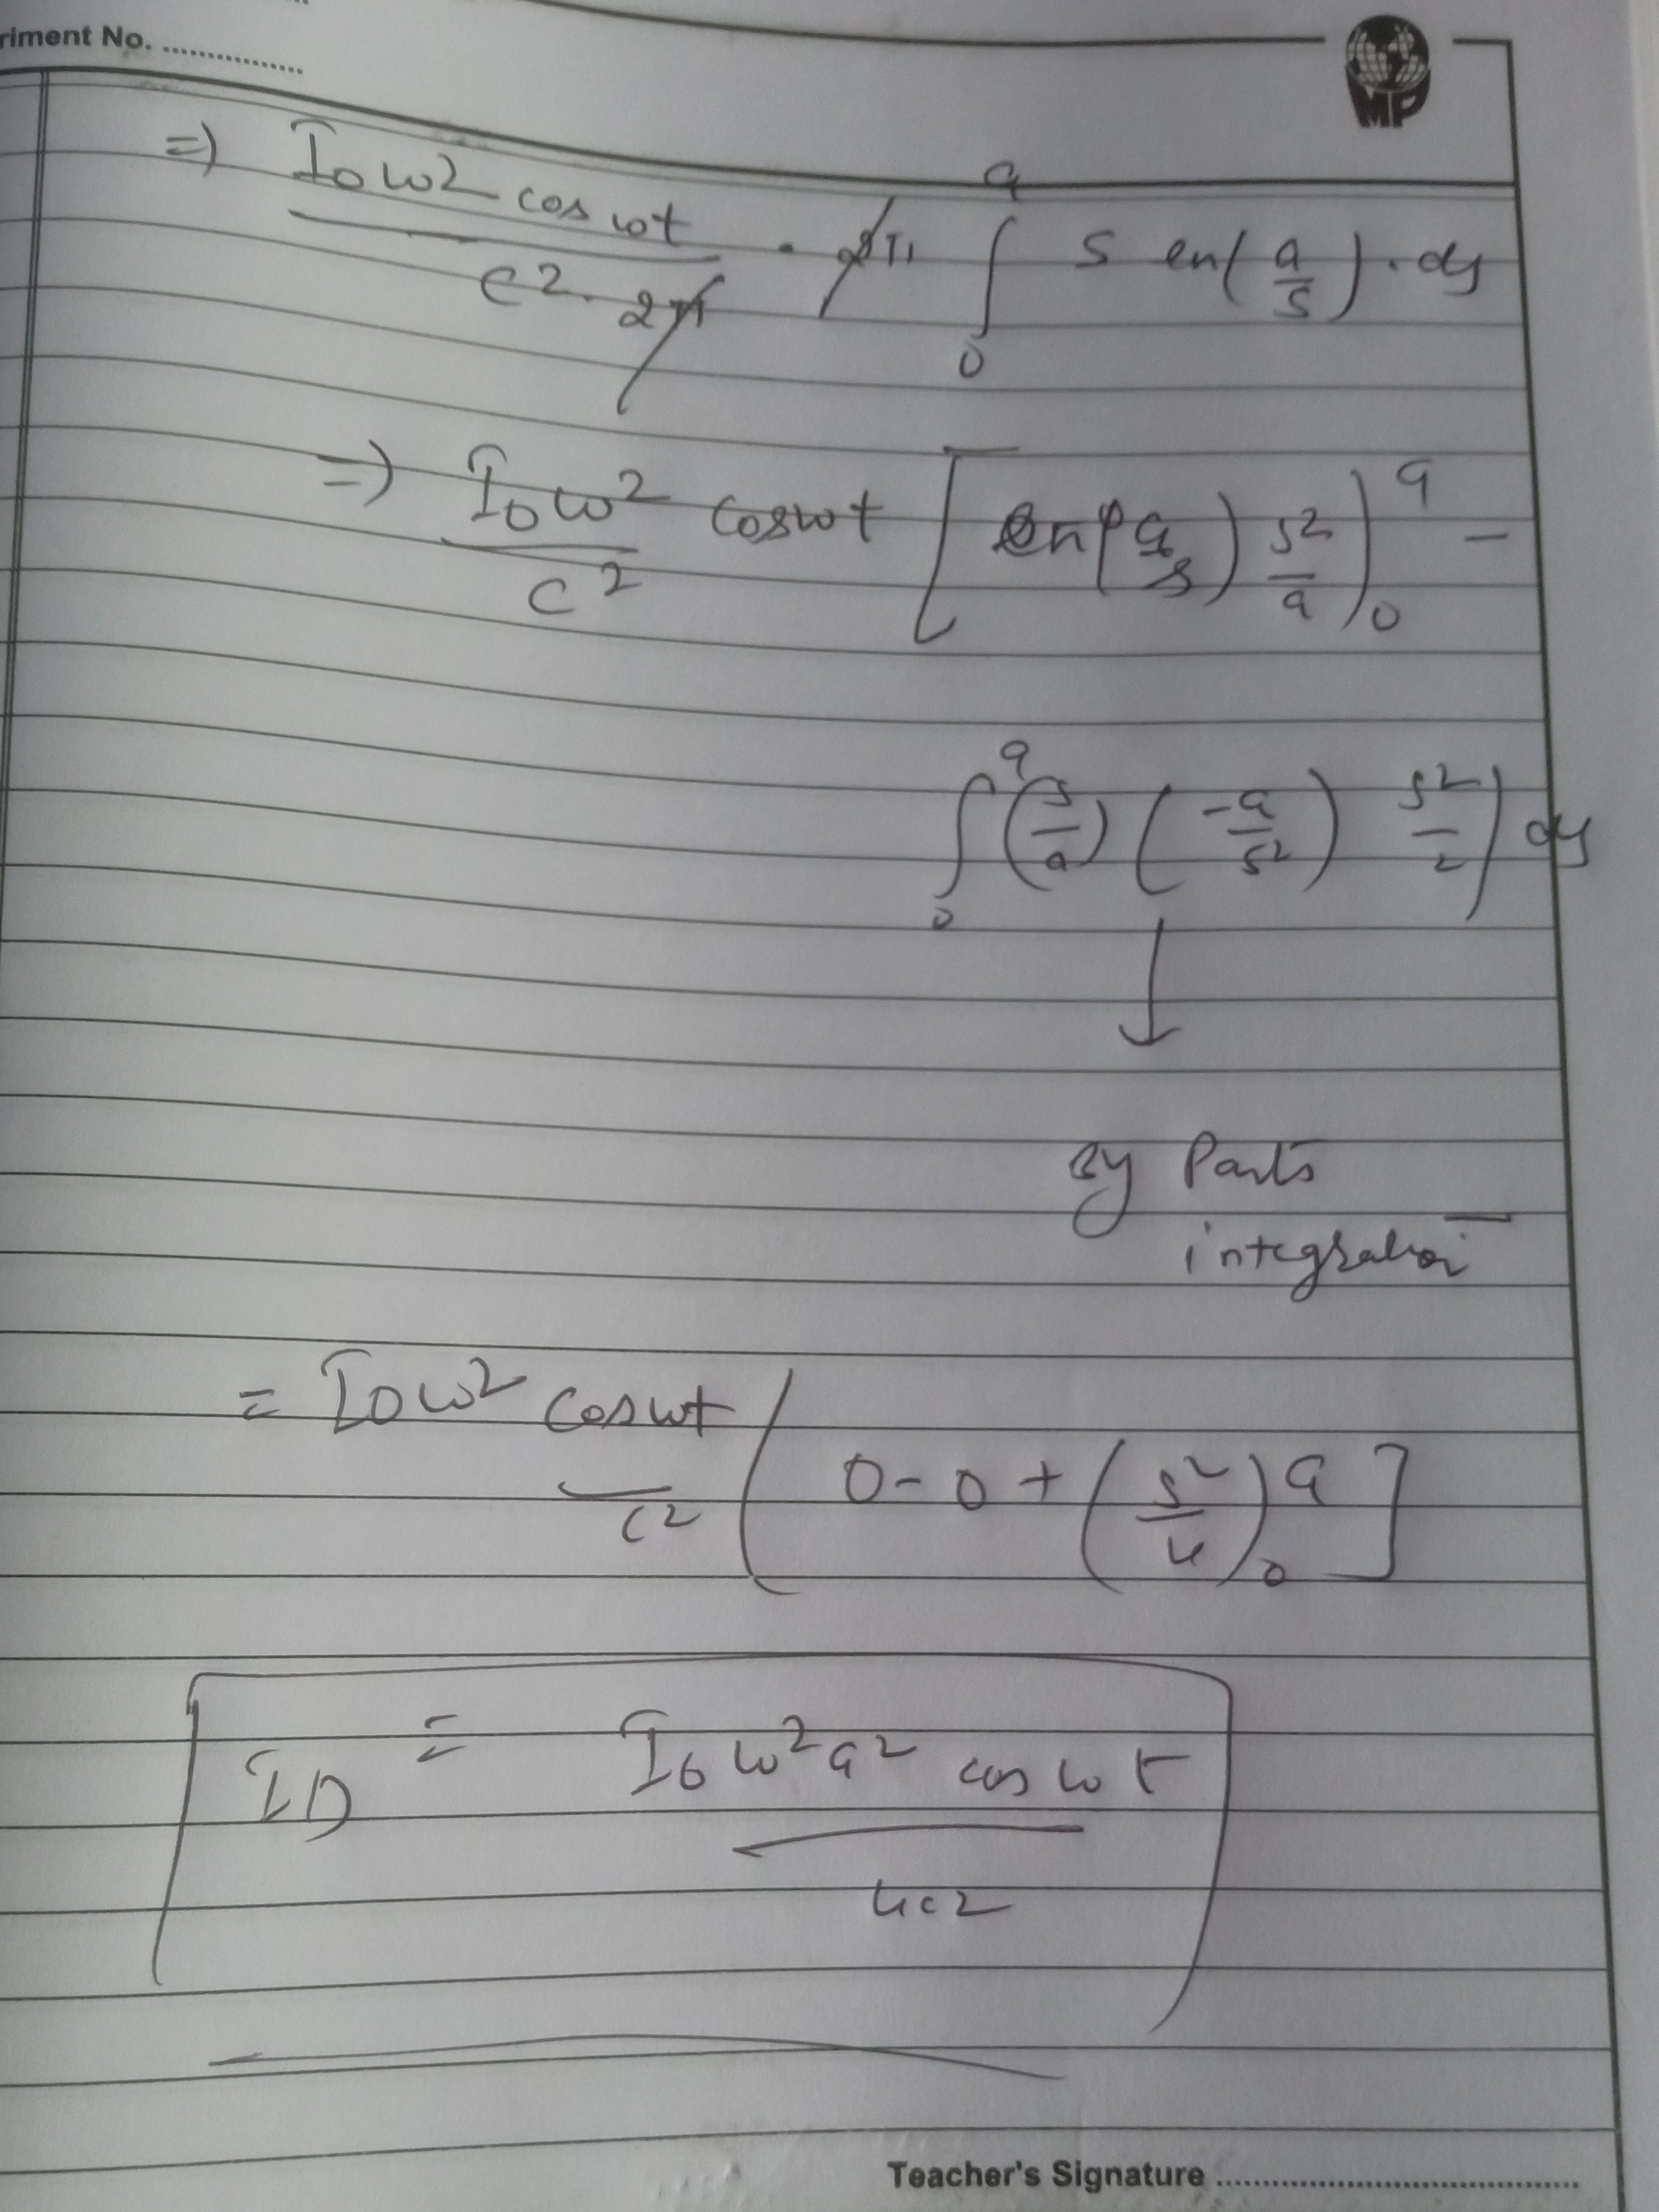 riment No. ...............
MP
=) I0 ω2 cos ωt / c2. 2π . 2π ∫0^a s en(a/s) . ds
=) I0 ω2 / c2 cos ωt [ en(a/s) s2/a )0^a -
∫0^a (s/a) (-a/s2) s2/2 ) ds
↓
By Parts
integration
= I0 ω2 cos ωt / c2 ( 0 - 0 + (s2/4)0^a ]
ID = I0 ω2 a2 cos ωt / 4c2
Teacher's Signature ........................................